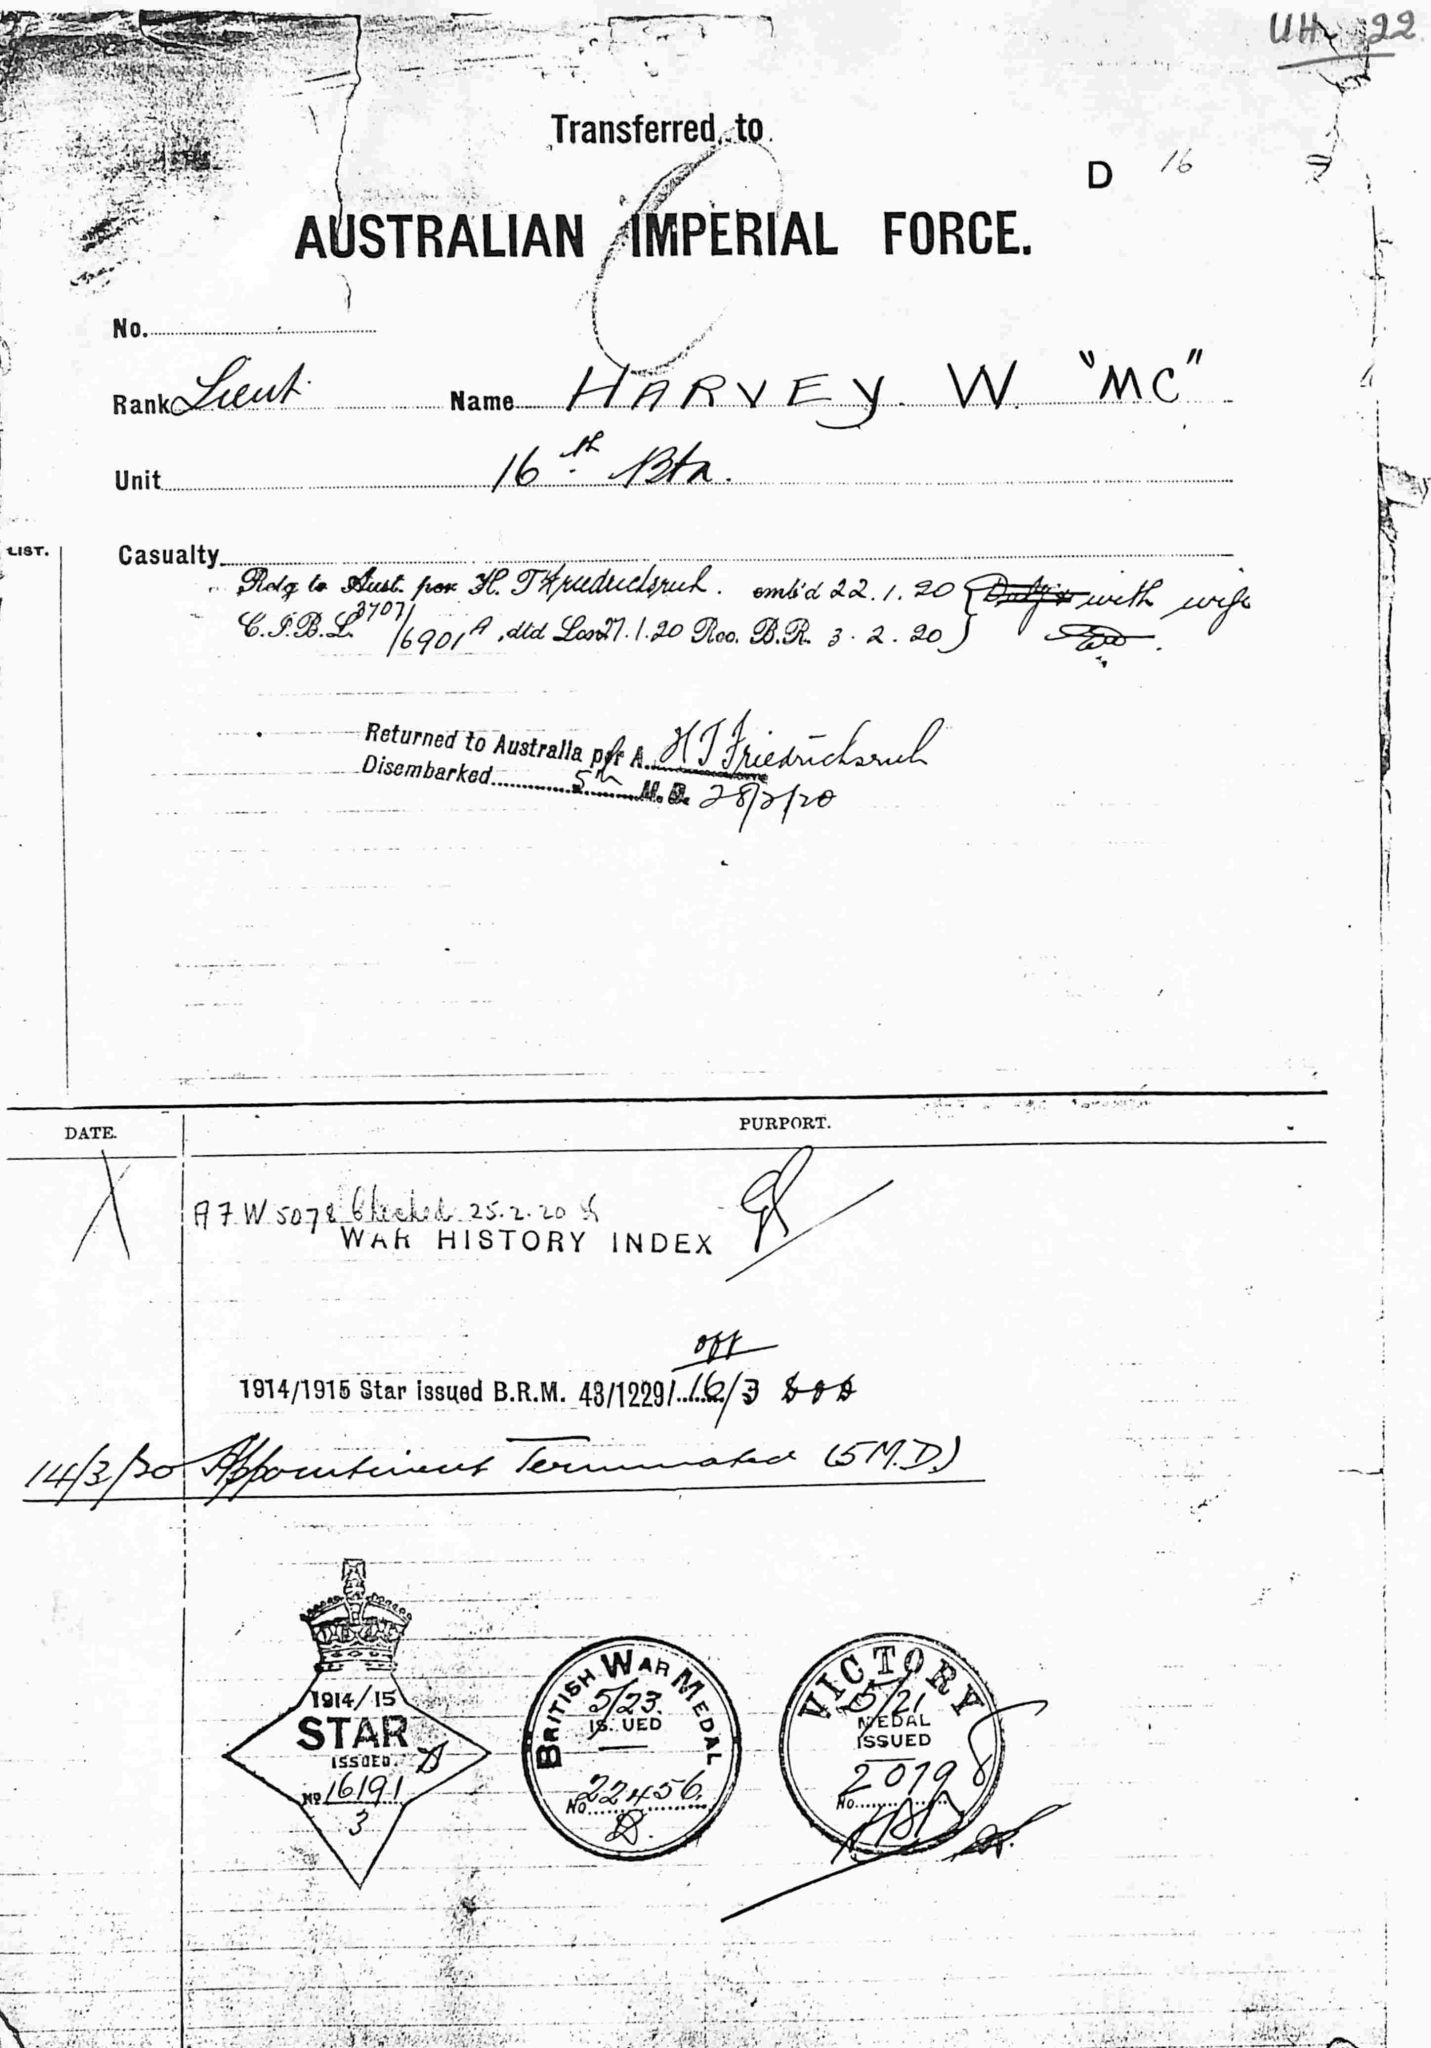 UH 22
Transferred to
D 16
AUSTRALIAN IMPERIAL FORCE.
No.
Rank Lieut. Name HARVEY W. "MC"
Unit 16th Btn.
LIST.
Casualty
Rdg to Aust. per H. T Friedrichsruh. emb'd 22.1.20 with wife
C.I.B.L. 3707/6901A, dtd Lon 27.1.20 Rec. B.R. 3.2.20
Returned to Australia per A. H T Friedrichsruh
Disembarked 5th M.D. 28/2/20
DATE. PURPORT.
A F W 5078 Checked 25.2.20
WAR HISTORY INDEX
off
1914/1915 Star Issued B.R.M. 43/1229/ 16/3
14/3/20 Appointment Terminated (5 M.D.)
1914/15
STAR
ISSUED.
No 16191
3
BRITISH WAR MEDAL
5/23.
IS UED
No 22456
VICTORY
15/21
MEDAL
ISSUED
No 20198